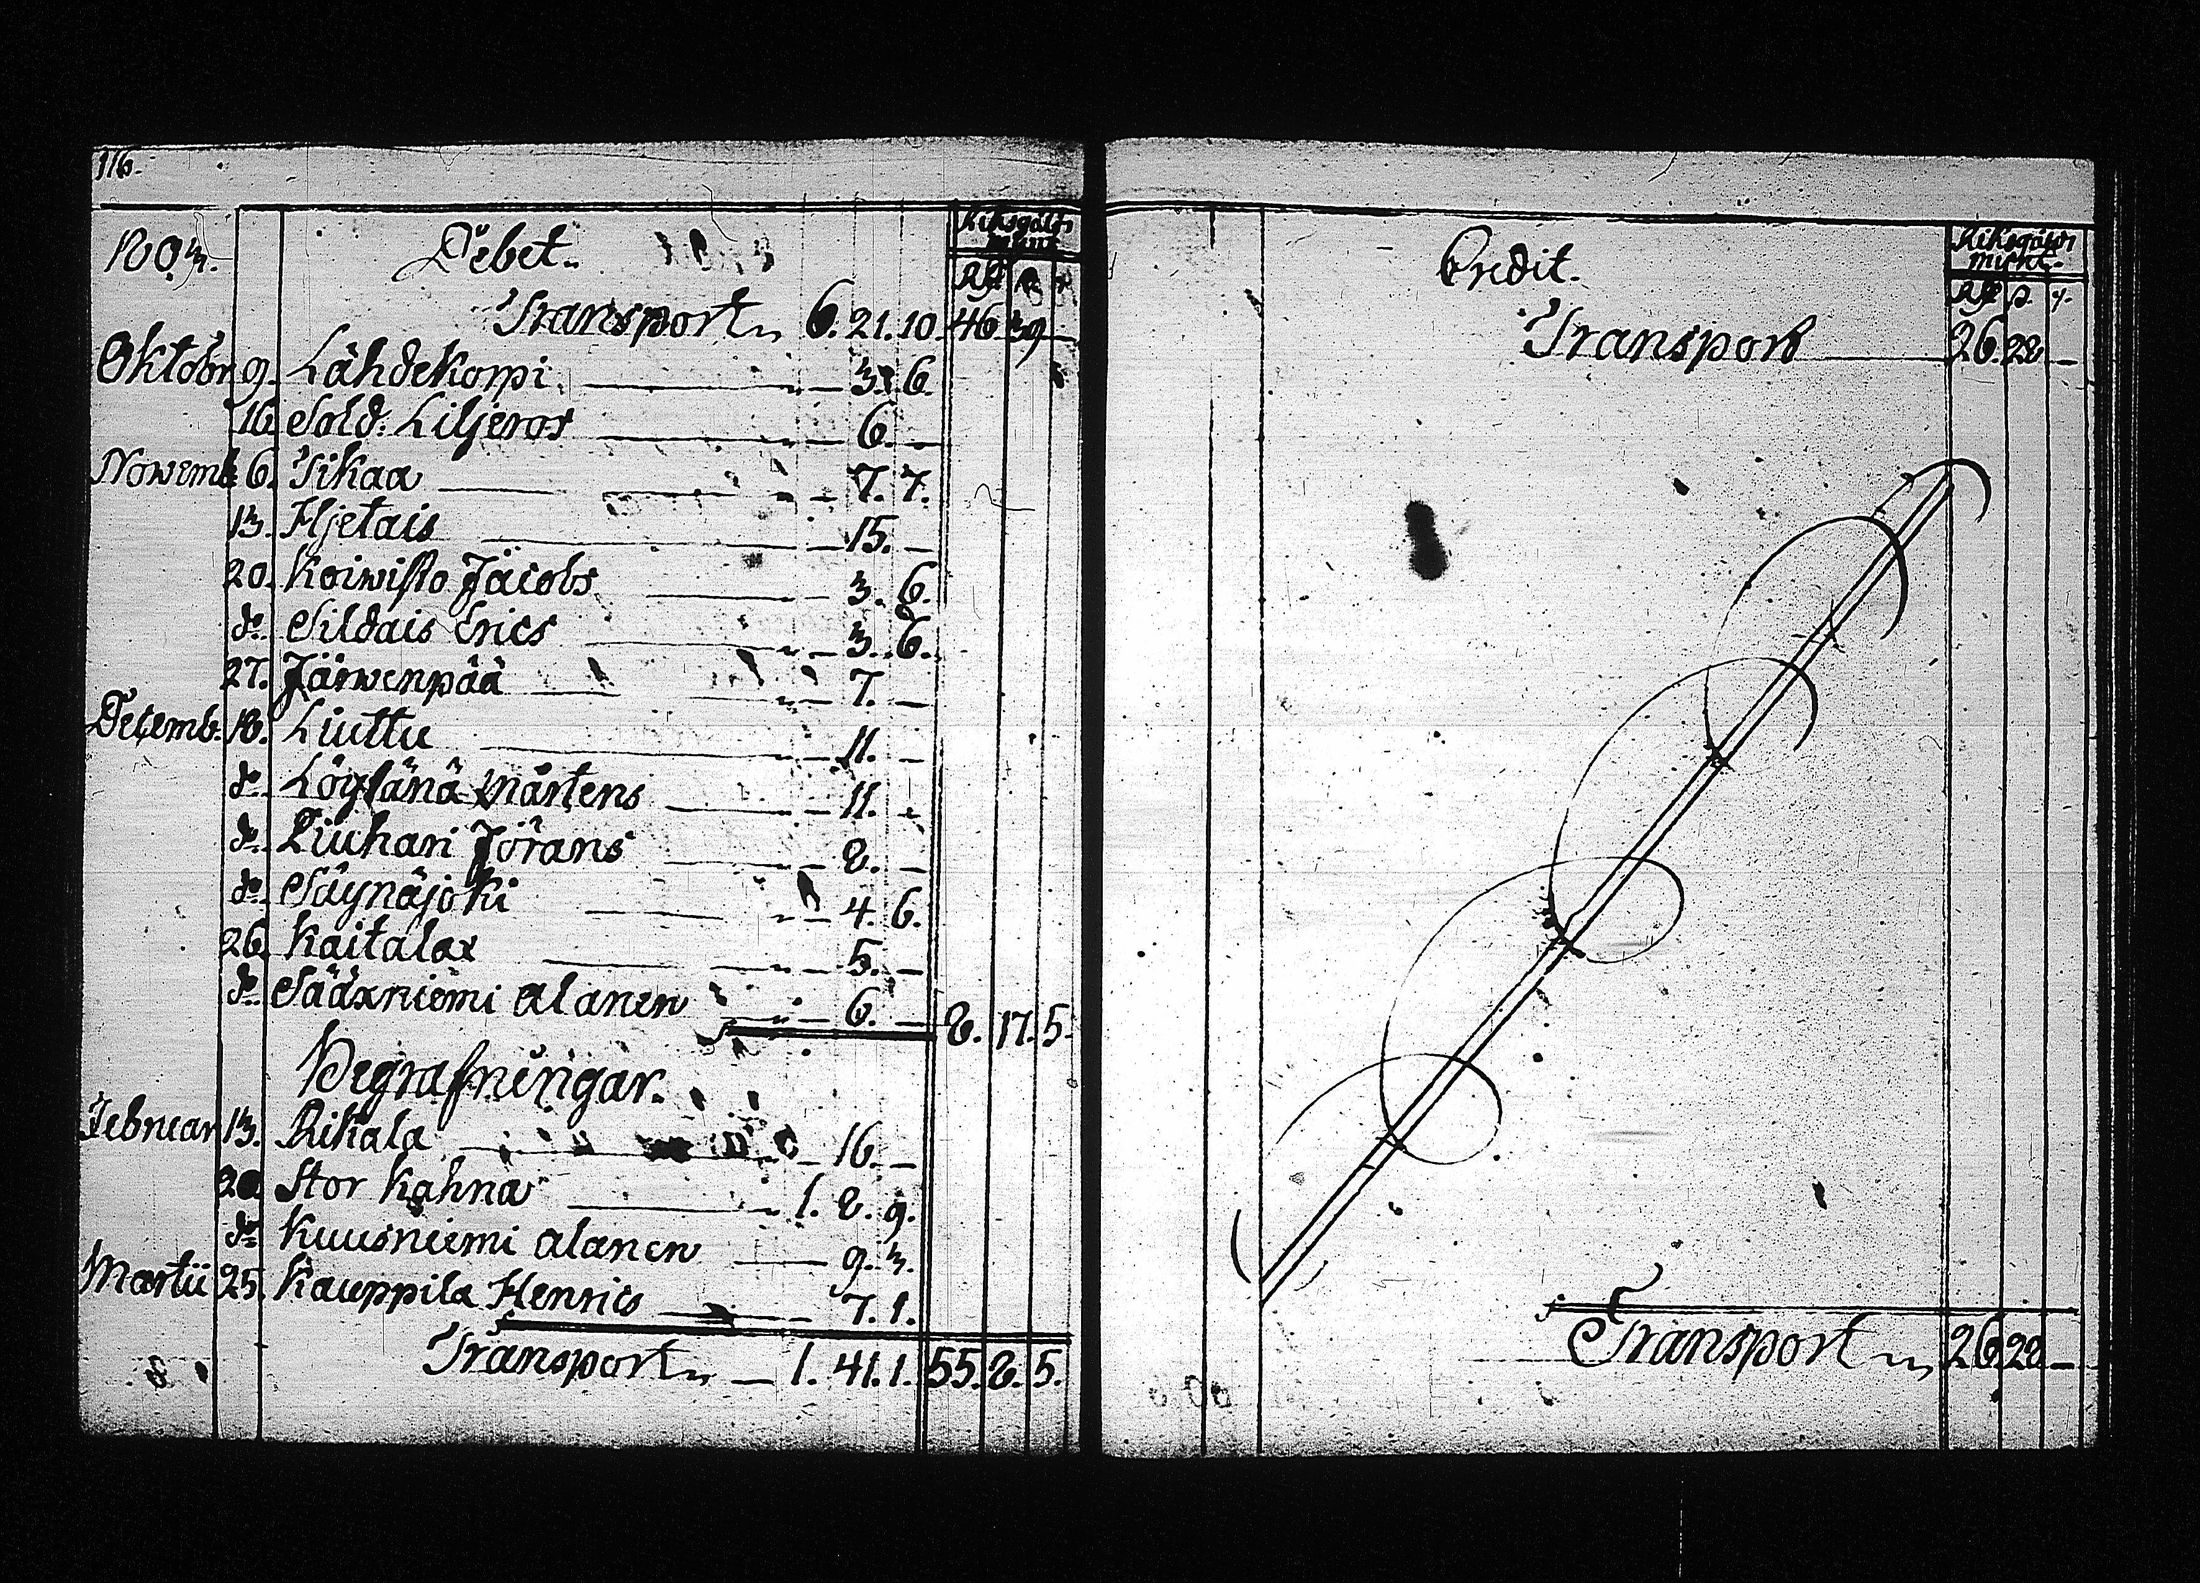 116.
1803. Debet. Riksgälds mynt.
Rdr ß r
Transport 6. 21. 10. 46. 39 —
Oktobr 9. Lähdekorpi — 3. 6.
16 Sold: Liljeros — 6. —
Novemb 6. Sikaa — 7. 7.
13. Hjetais — 15. —
20. Koiwisto Jacobs — 3. 6.
do Sildais Erics — 3. 6.
27. Järwenpää — 7. —
Decemb. 18. Liuttu — 11. —
do Löylänä Mårtens — 11. —
do Piuhari Jörans — 8. —
do Säynäjoki — 4. 6.
26. Kaitalax — 5. —
do Sääxniemi Alanen — 6. — 8. 17. 5.
Begrafningar.
Februar 13. Rikala — 16. —
20. Stor Kahna — 1. 8. 9.
do Kuusniemi Alanen — 9. 3.
Martii 25. Kauppila Henrics — 7. 1.
Transport — 1. 41. 1. 55. 8. 5.
Credit. Riksgälds mynt.
Rdr ß. r.
Transport — 26. 28 —
Transport 26. 28 —